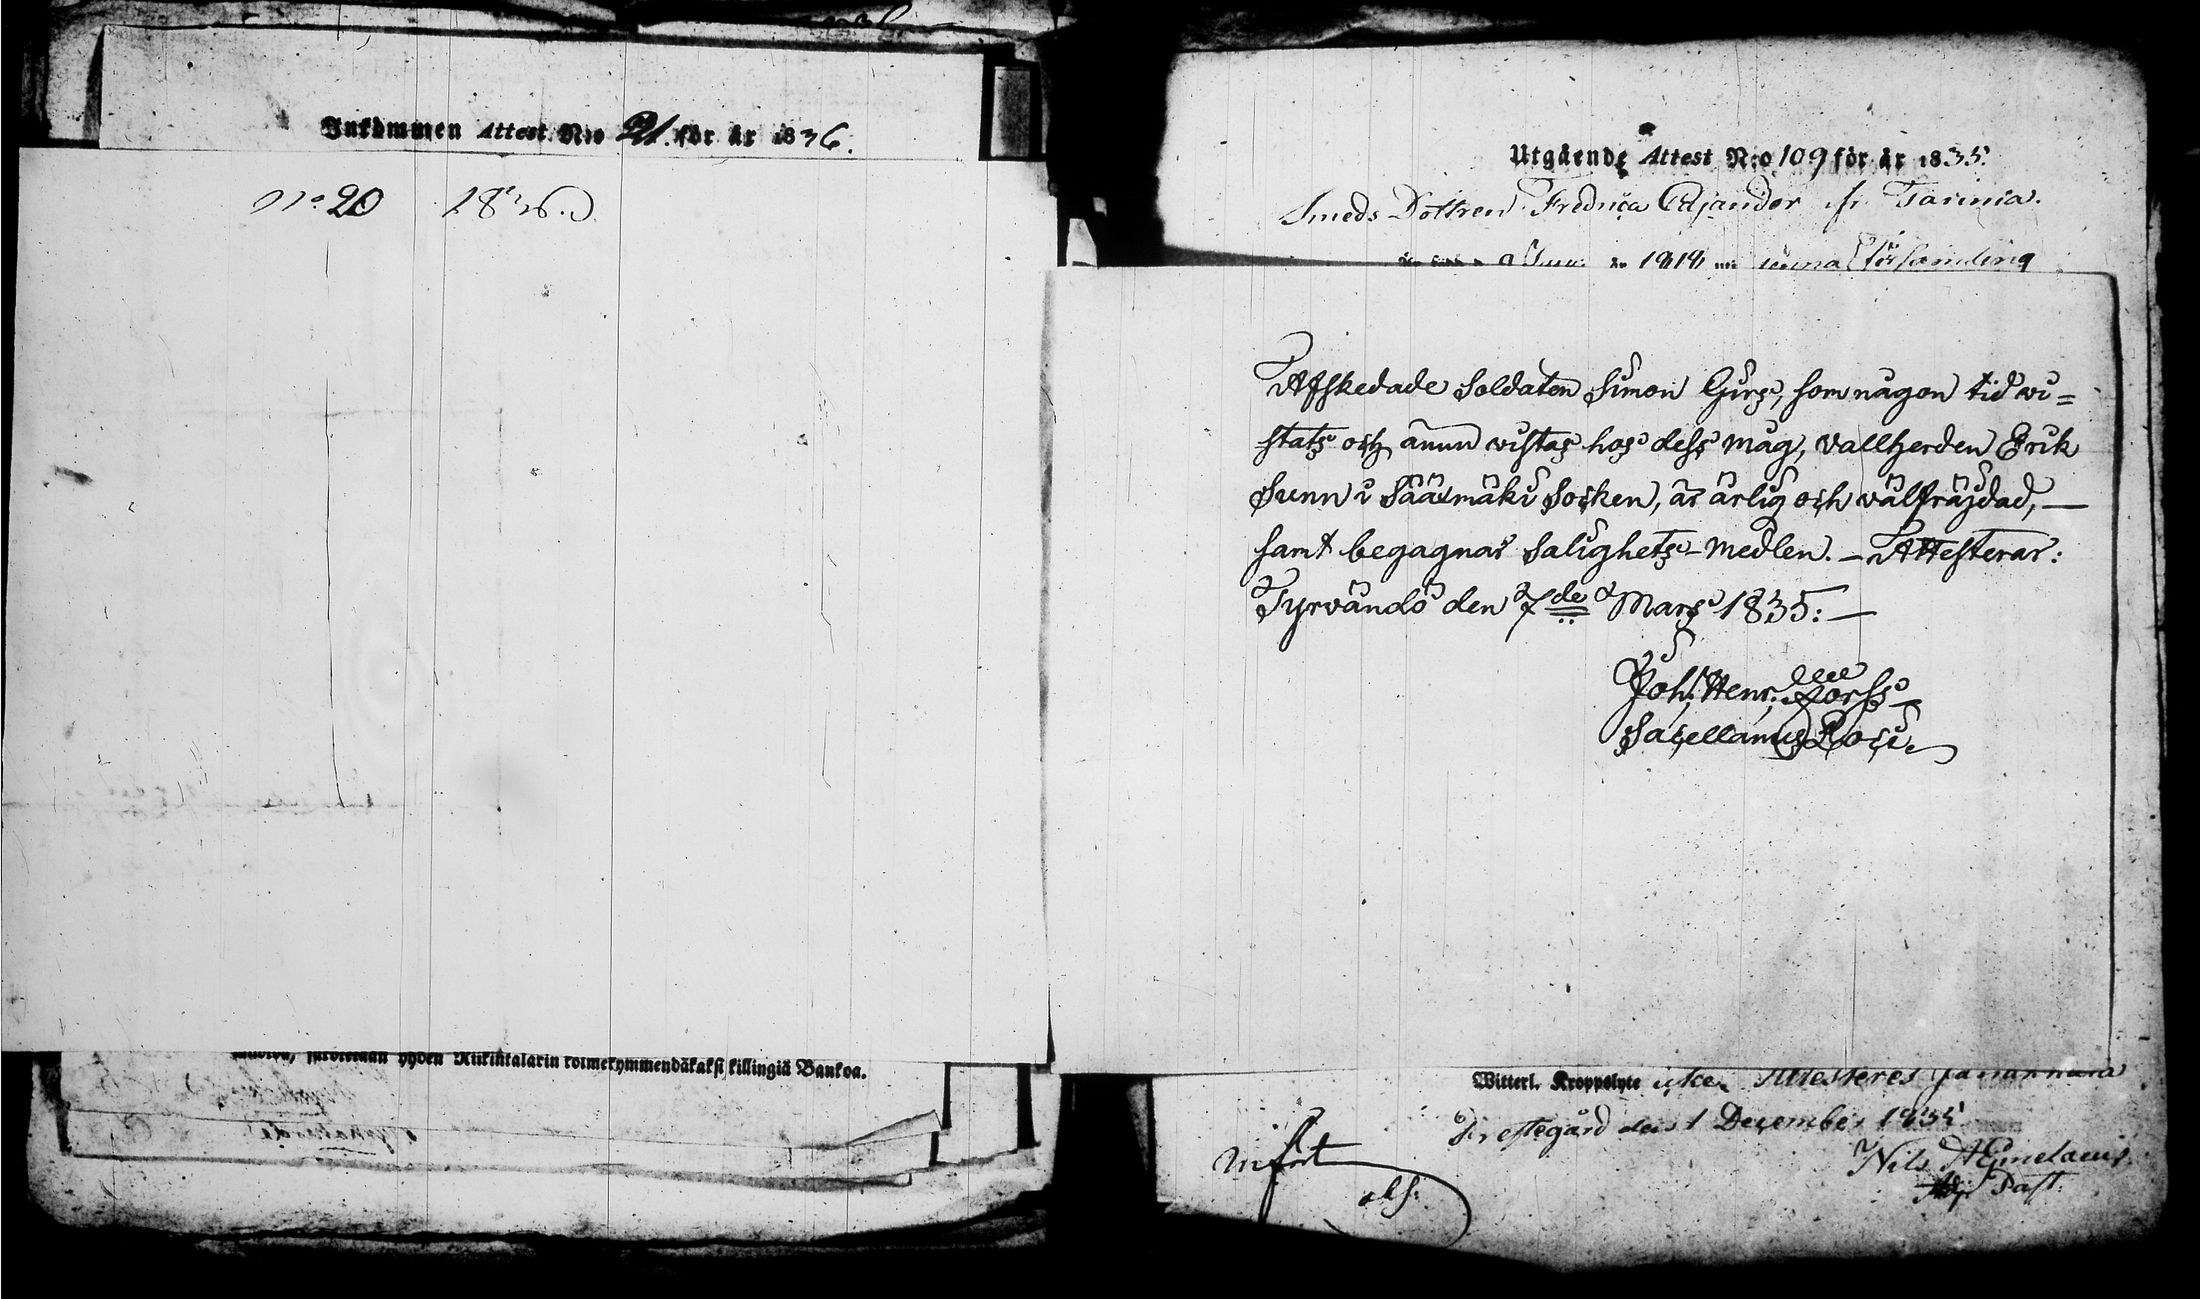 Inkommen Attest N:o 21. för år 1836.
No 20 1836.
kymmendäkaksi killingiä Bankoa.
Utgående Attest N:o 109 för år 1835.
Smeds Dottren Fredrica Cajander fr.
är 1818 församling
Afskedade Soldaten Simon Girs, som någon tid wi=
stats och ännu wistas hos dess måg, vallherden Erik
Sunn i Sääxmäki Socken, är ärlig och välfräjdad, —
samt begagnar Salighets-medlen. — Attesterar:
Tyrvändö den 7de Mars 1835: —
Joh: Henr: Forss
Sacellanus Loci.
Witterl. Kroppslyte icke, Attesteres Janakkala
Prestegård den 1 December 1835
Nils
Adj. Past.
infört